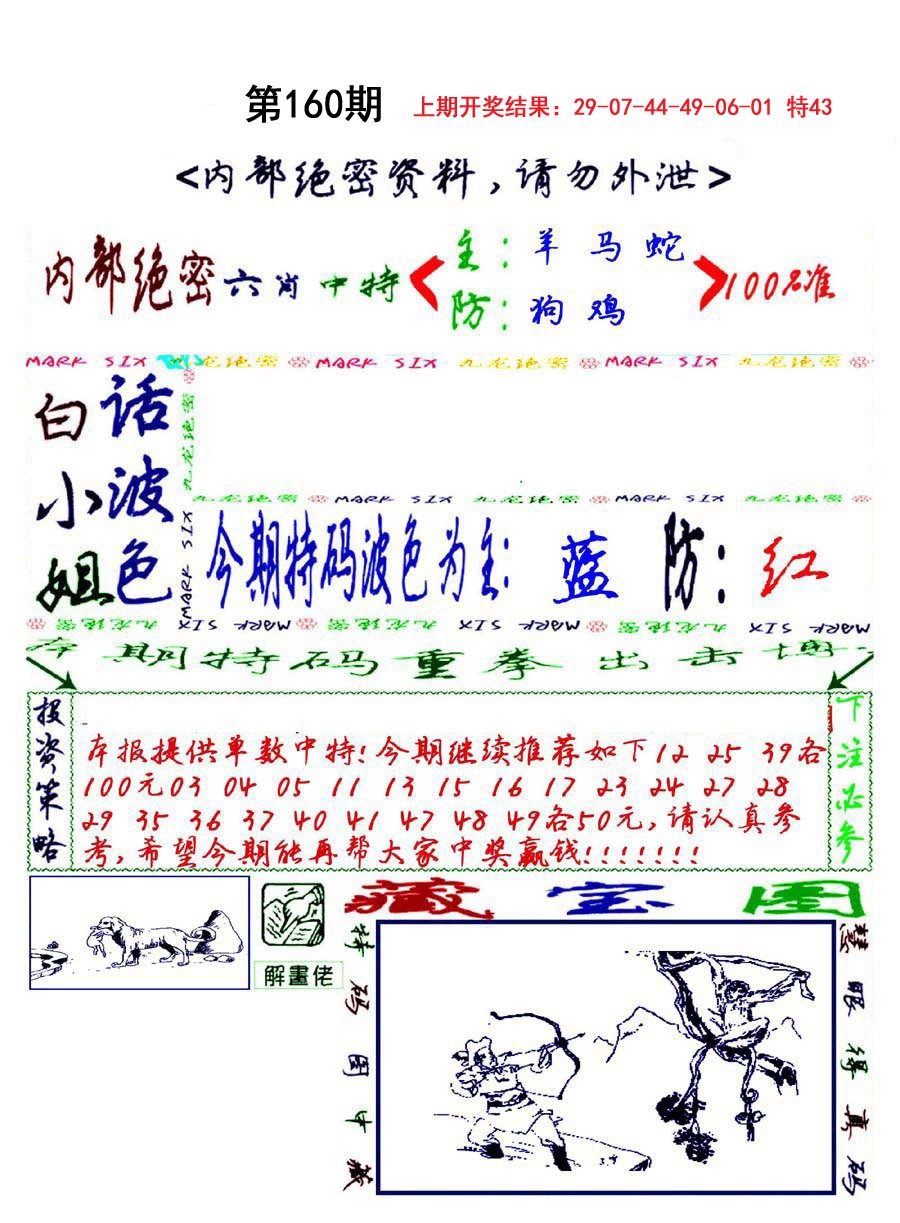 第160期 上期开奖结果：29-07-44-49-06-01 特43
<内部绝密资料，请勿外泄>
内部绝密六肖中特
主：羊 马 蛇
防：狗 鸡
100%准
MARK SIX 九龙绝密 MARK SIX 九龙绝密 MARK SIX 九龙绝密
白小姐
话波色
九龙绝密
MARK SIX
九龙绝密 MARK SIX 九龙绝密 MARK SIX 九龙绝密
今期特码波色为主：蓝 防：红
九龙绝密 MARK SIX 九龙绝密 MARK SIX 九龙绝密 MARK SIX
本期特码重拳出击博
投资策略
本报提供单数中特！今期继续推荐如下12 25 39各
100元03 04 05 11 13 15 16 17 23 24 27 28
29 35 36 37 40 41 47 48 49各50元，请认真参
考，希望今期能再帮大家中奖赢钱！！！！！！！
下注必参
解畫佬
藏宝图
特码图中藏
慧眼得真码